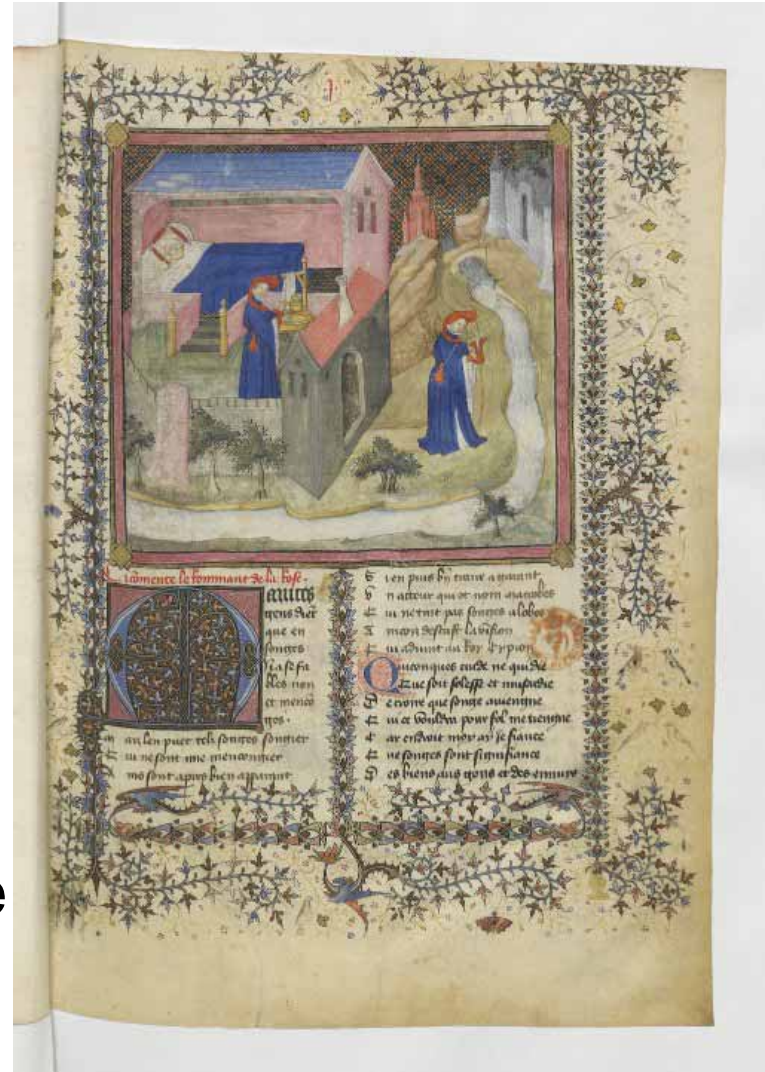 Ci cõmence le Rommant de la Rose.
Maintes
gens diẽt
que en
songes
N'a se fa
bles non
et mencõ
ges.
M ais len puet tels songes songier
Q ui ne sont mie mencongier
A ins sont apres bien apparant
S i en puis bñ traire a garant
V n acteur qui ot nom macrobes
Q ui ne tint pas songes a lobes
A incois descrist la vision
Q ui advint au Roy Cypion
Quiconques cuide ne qui die
Que soit folesse et musardie
D e croire que songe aviengne
Q ui ce vouldra pour fol me tiengne
C ar endroit moy ay je fiance
Q ue songes sont signifiance
D es biens aus gens et des ennuis
e